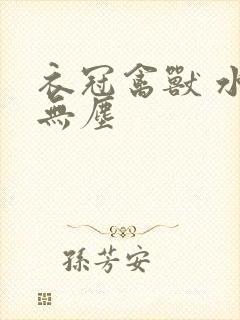 衣冠禽獸 水
無塵
孫芳安